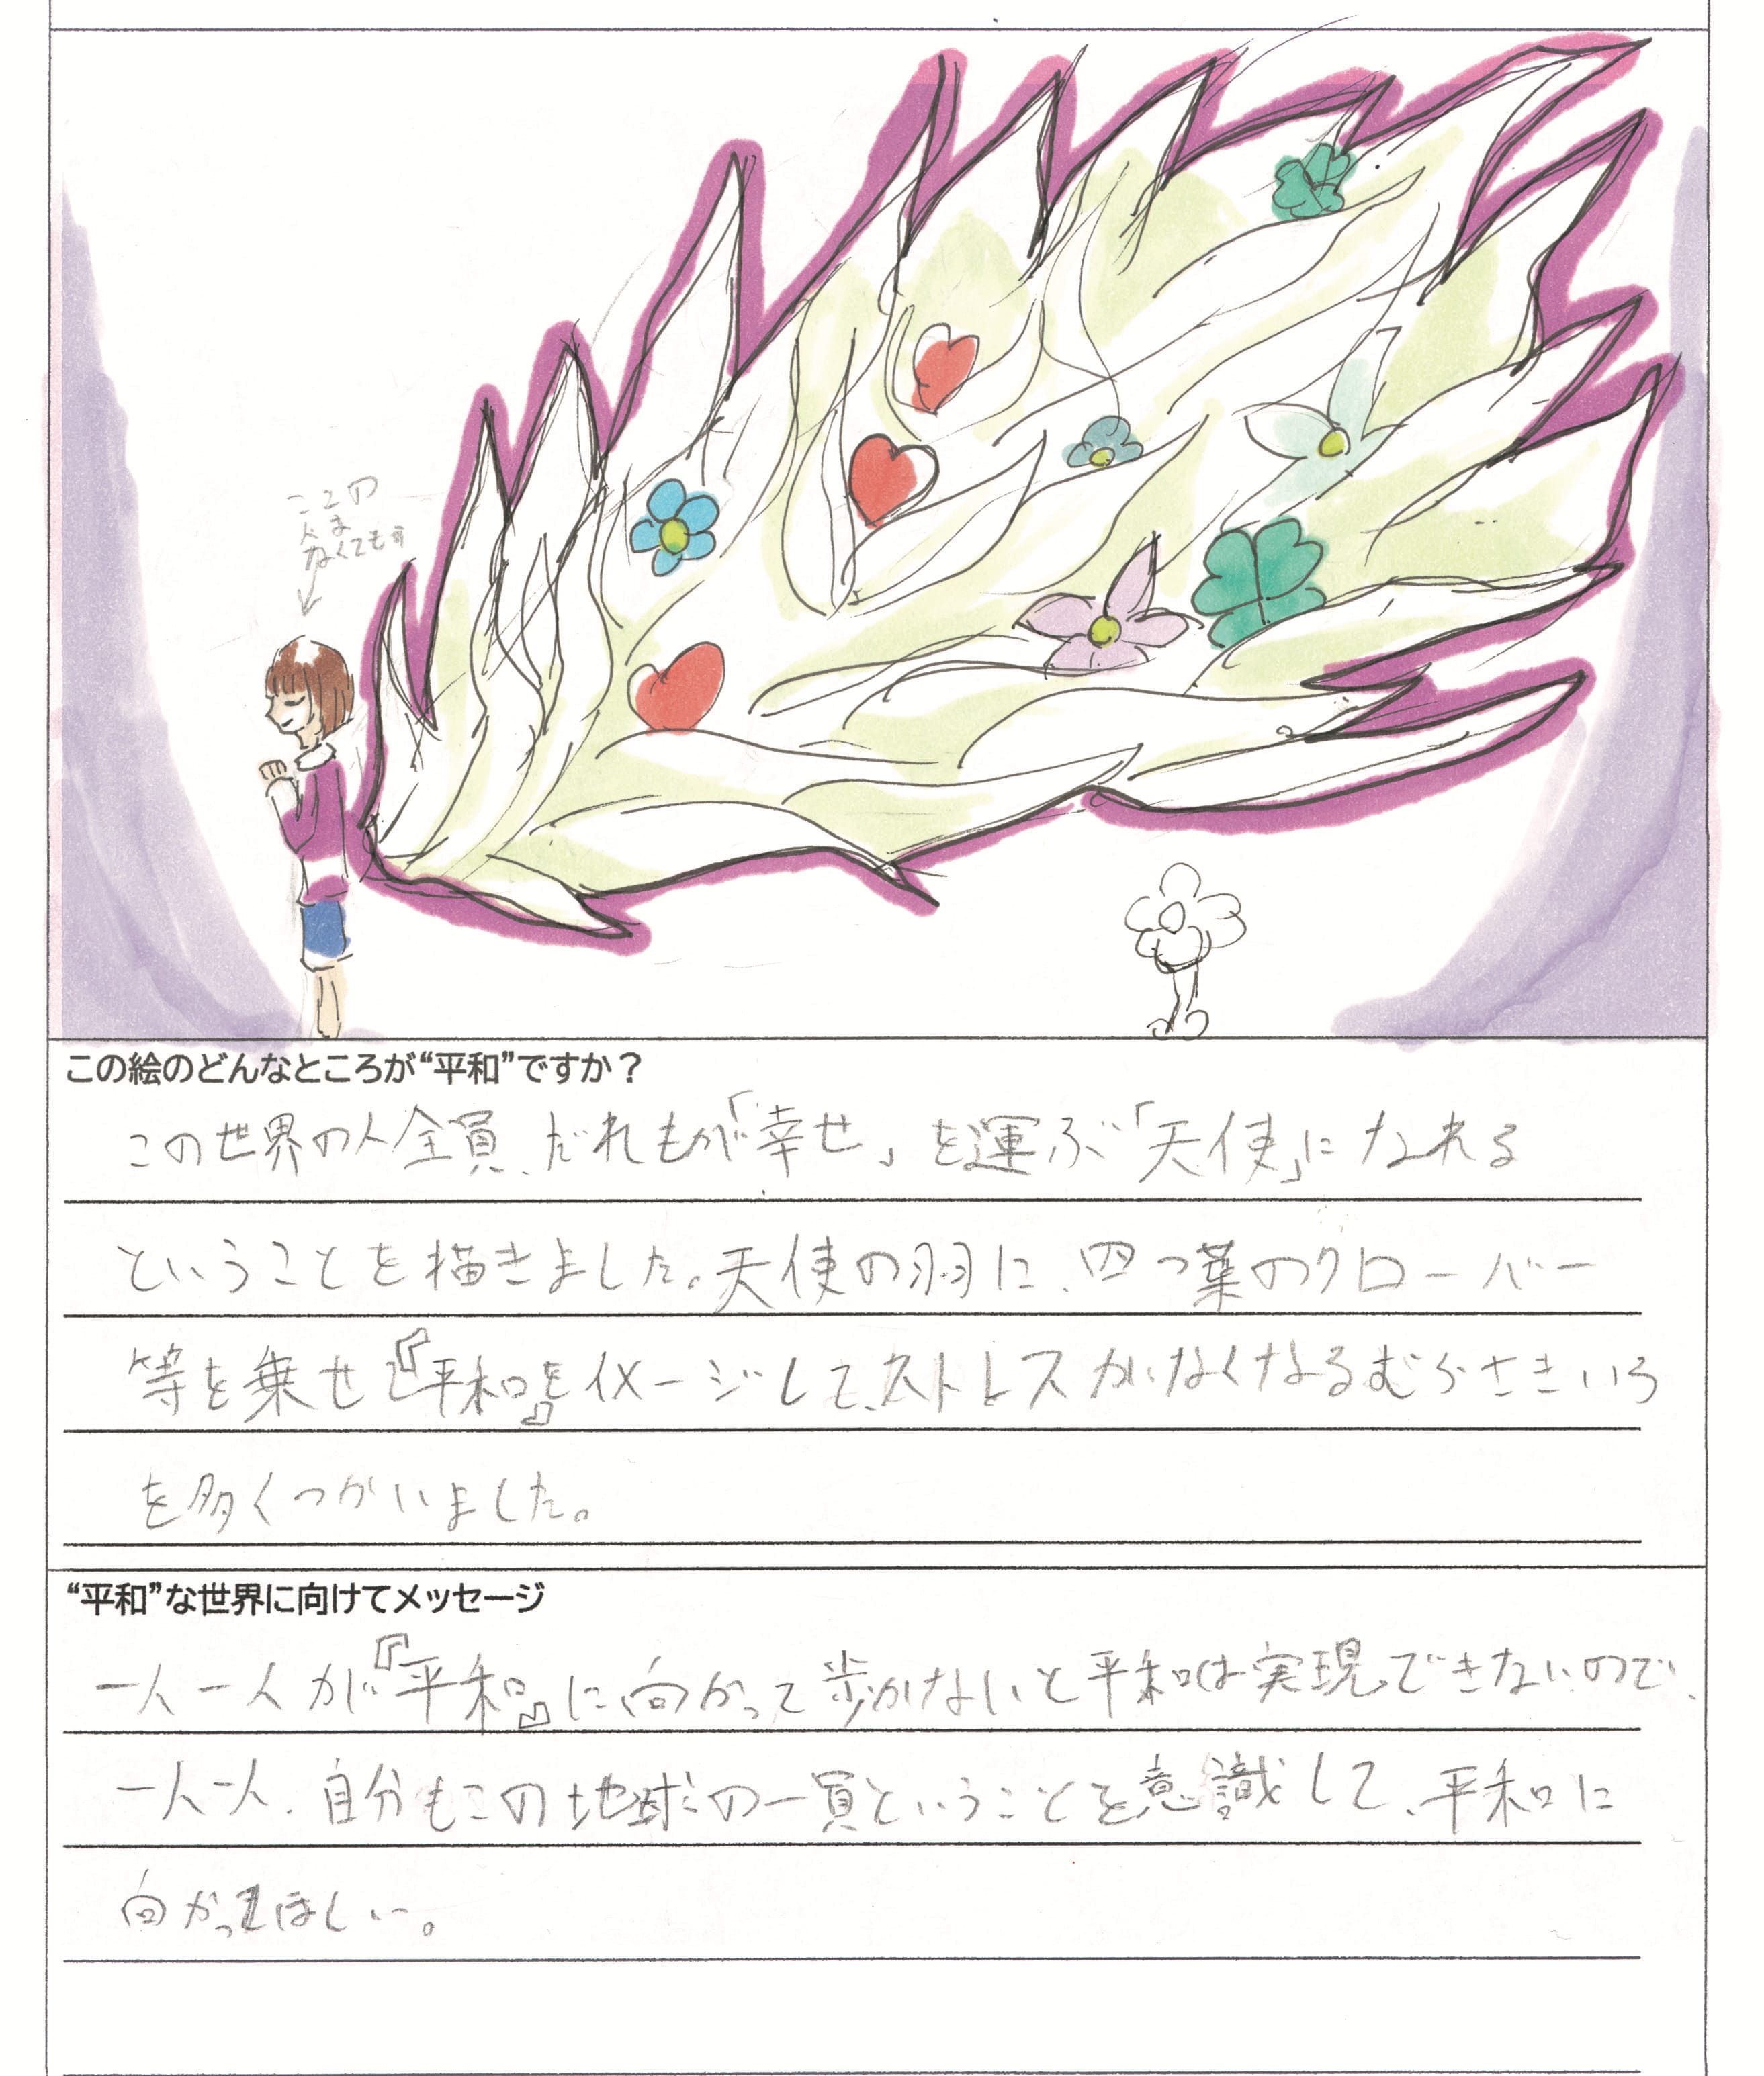 ここの
人は
なくても可
この絵のどんなところが“平和”ですか？
この世界の人全員、だれもが「幸せ」を運ぶ「天使」になれる
ということを描きました。天使の羽に、四つ葉のクローバー
等を乗せ『平和』をイメージして、ストレスがなくなるむらさきいろ
を多くつかいました。
“平和”な世界に向けてメッセージ
一人一人が『平和』に向かって歩かないと平和は実現できないので、
一人一人、自分もこの地球の一員ということを意識して、平和に
向かってほしい。